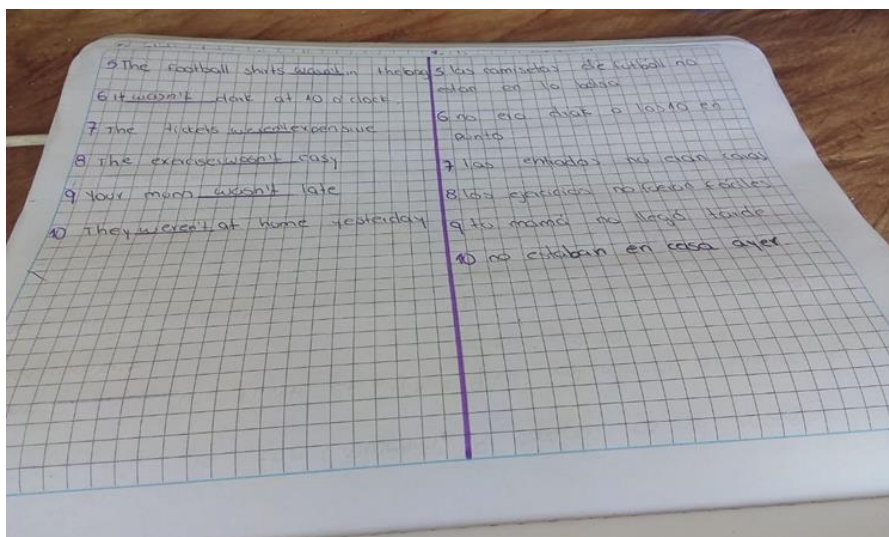 5 The football shirts wasn't in the bag
6 it wasn't dark at 10 o'clock.
7 The tickets weren't expensive
8 The exercise wasn't easy
9 Your mum wasn't late
10 They weren't at home yesterday
5 las camisetas de futball no
en la bolsa
6 no era a las 10 en
punto
7 las entradas no eran caras
8 los no fueron fáciles
9 tu mamá no llegó tarde
10 no estaban en casa ayer.